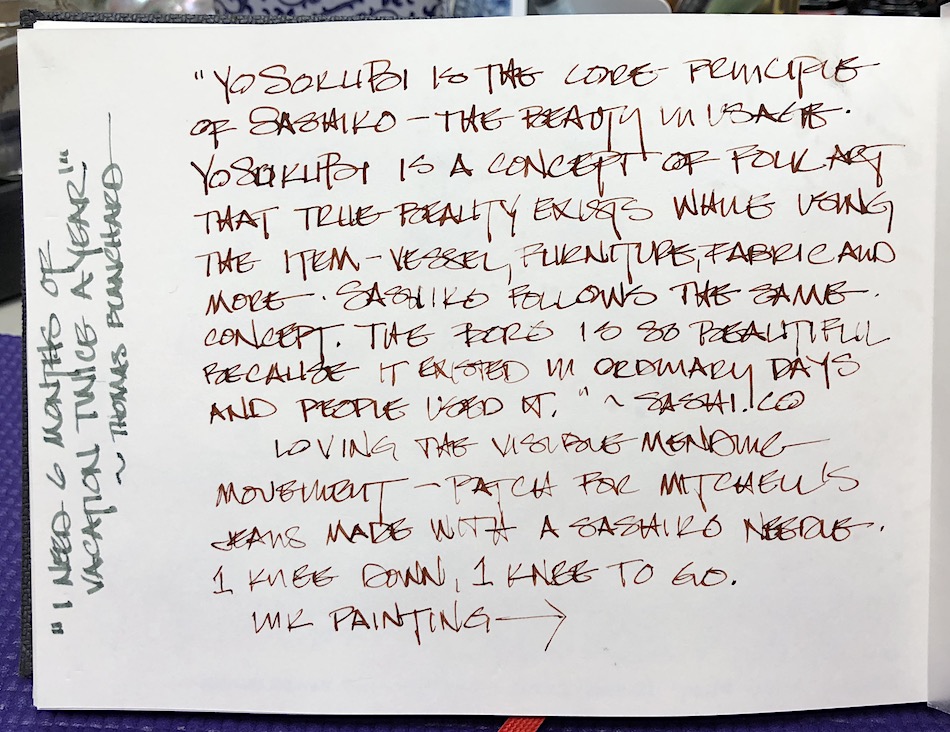 "YoSokuBi IS THE CORE PRINCIPLE
OF SASHIKO – THE BEAUTY IN USAGE.
YoSokuBi IS A CONCEPT OF FOLK ART
THAT TRUE BEAUTY EXISTS WHILE USING
THE ITEM – VESSEL, FURNITURE, FABRIC AND
MORE. SASHIKO FOLLOWS THE SAME
CONCEPT. THE BORO IS SO BEAUTIFUL
BECAUSE IT EXISTED IN ORDINARY DAYS
AND PEOPLE USED IT." ~ SASHI.CO
LOVING THE VISIBLE MENDING
MOVEMENT – PATCH FOR MITCHELL'S
JEANS MADE WITH A SASHIKO NEEDLE.
1 KNEE DOWN, 1 KNEE TO GO.
INK PAINTING →
"I NEED 6 MONTHS OF
VACATION TWICE A YEAR!"
~ THOMAS BLANCHARD